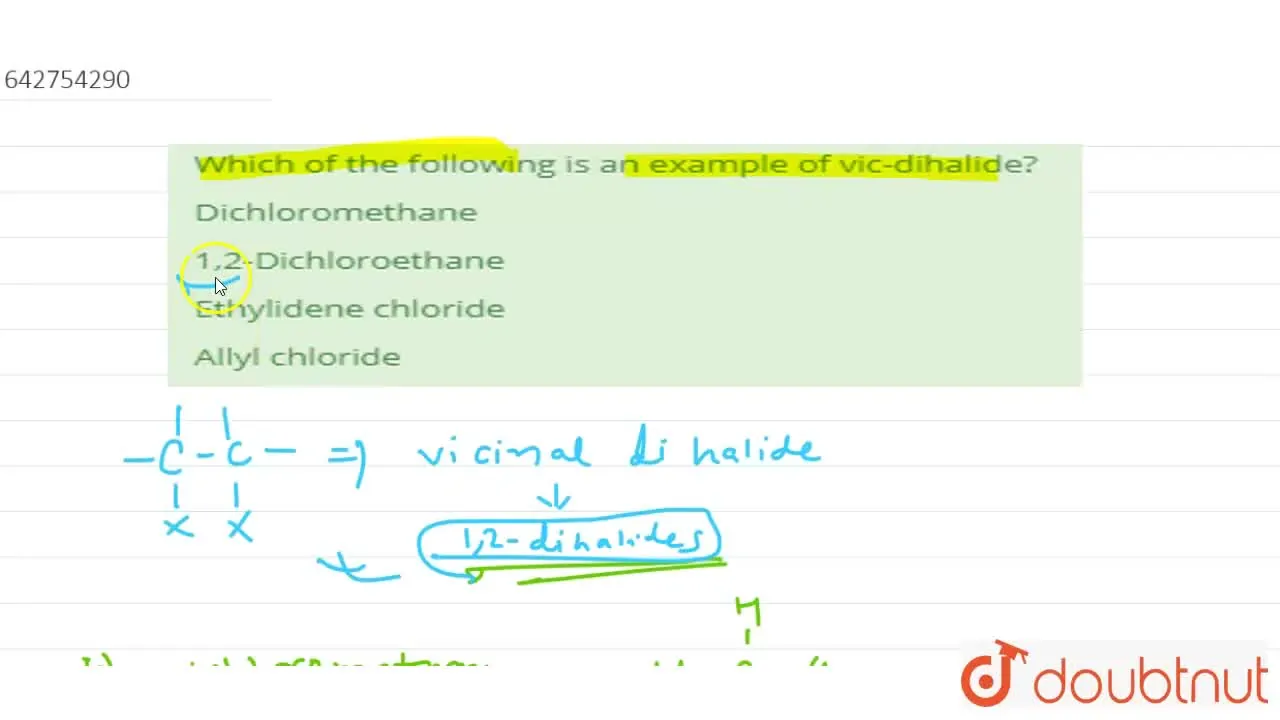 642754290
Which of the following is an example of vic-dihalide?
Dichloromethane
1,2-Dichloroethane
Ethylidene chloride
Allyl chloride
-C-C- => vicinal dihalide
X X
1,2-dihalides
H
doubtnut